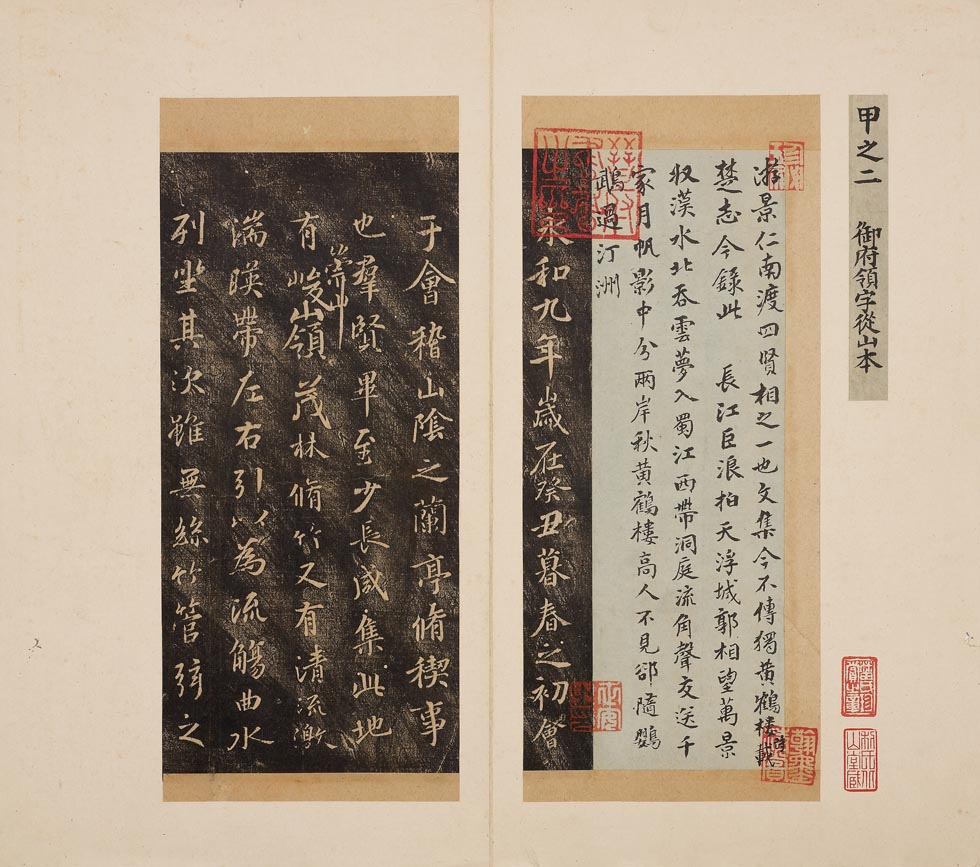 甲之二 御府領字從山本
游景仁南渡四賢相之一也文集今不傳獨黃鶴樓詩載
楚志今錄此 長江巨浪拍天浮城郭相望萬景
收漢水北吞雲夢入蜀江西帶洞庭流角聲交送千
家月帆影中分兩岸秋黃鶴樓高人不見卻隨鸚
鵡過汀洲
永和九年歲在癸丑暮春之初會
于會稽山陰之蘭亭脩稧事
也羣賢畢至少長咸集此地
有崇山峻嶺茂林脩竹又有清流激
湍暎帶左右引以為流觴曲水
列坐其次雖無絲竹管弦之